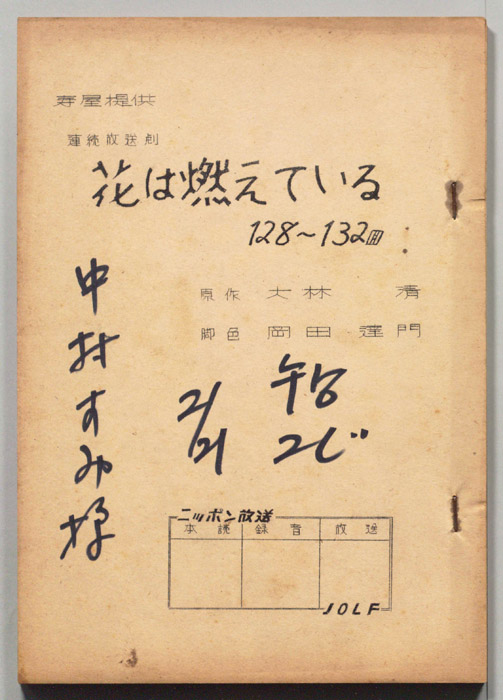 寿屋提供
連続放送劇
花は燃えている
128~132回
原作 大林 清
脚色 岡田達門
中村すみ様
2/21
2じ
ニッポン放送
本読 録音 放送
JOLF